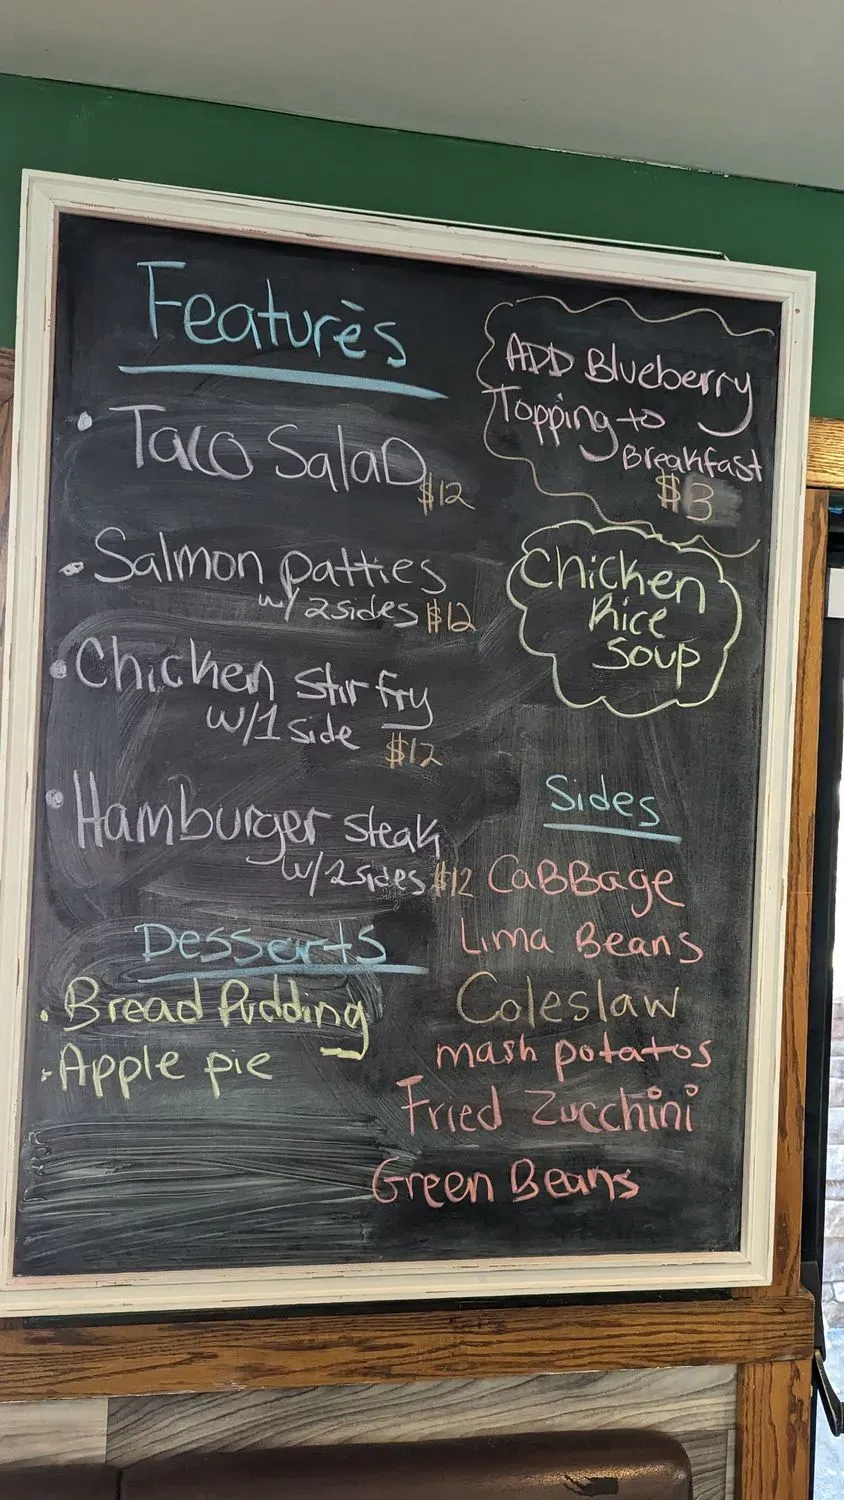 Features
• Taco SalaD
$12
• Salmon patties
w/ 2sides $12
• Chicken stir fry
w/1 side
$12
• Hamburger steak
w/2sides $12
Desserts
• Bread Pudding
• Apple pie
ADD Blueberry
Topping to
Breakfast
$3
Chicken
Rice
Soup
Sides
CaBBage
Lima Beans
Coleslaw
mash potatos
Fried Zucchini
Green Beans